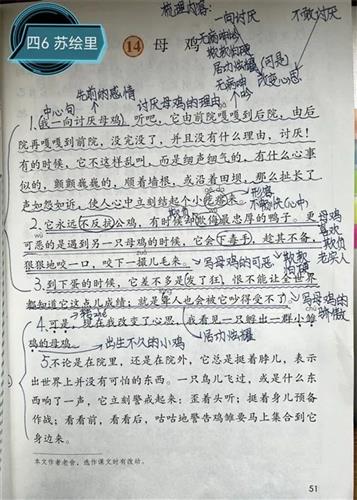 四6 苏绘里
梳理内容:
一向讨厌
不敢讨厌
无病呻吟
欺软怕硬
居功炫耀
(可是)
改变心思
14 母鸡
先前的感情
讨厌母鸡的理由
无病呻吟
中心句
1.我一向讨厌母鸡。听吧,它由前院嘎嘎到后院,由后
院再嘎嘎到前院,没完没了,并且没有什么理由,讨厌!
有的时候,它不这样乱叫,而是细声细气的,有什么心事
似的,颤颤巍巍的,顺着墙根,或沿着田坝,那么扯长了
声如怨如诉,使人心中立刻结起个小疙瘩来。
形容
不畅快(心中)
欺负
2.它永远不反抗公鸡,有时候却欺侮最忠厚的鸭子。更
可恶的是遇到另一只母鸡的时候,它会下毒手,趁其不备,
狠狠地咬一口,咬下一撮儿毛来。
写母鸡的可恶
欺软怕硬
欺负老实人
3.到下蛋的时候,它差不多是发了狂,恨不能让全世界
都知道它这点儿成绩;就是聋人也会被它吵得受不了。
写母鸡的骄傲
4.可是,现在我改变了心思,我看见一只孵出一群小雏
鸡的母鸡。
出生不久的小鸡
居功炫耀
5.不论是在院里,还是在院外,它总是挺着脖儿,表示
出世界上并没有可怕的东西。一只鸟儿飞过,或是什么东
西响了一声,它立刻警戒起来:歪着头听;挺着身儿预备
作战;看看前,看看后,咕咕地警告鸡雏要马上集合到它
身边来。
本文作者老舍,选作课文时有改动。
51